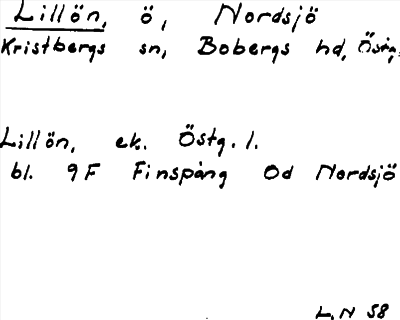 Lillön, ö, Nordsjö
Kristbergs sn, Bobergs hd, Östg.
Lillön, ek. Östg. l.
bl. 9F Finspång Od Nordsjö
L.N 58